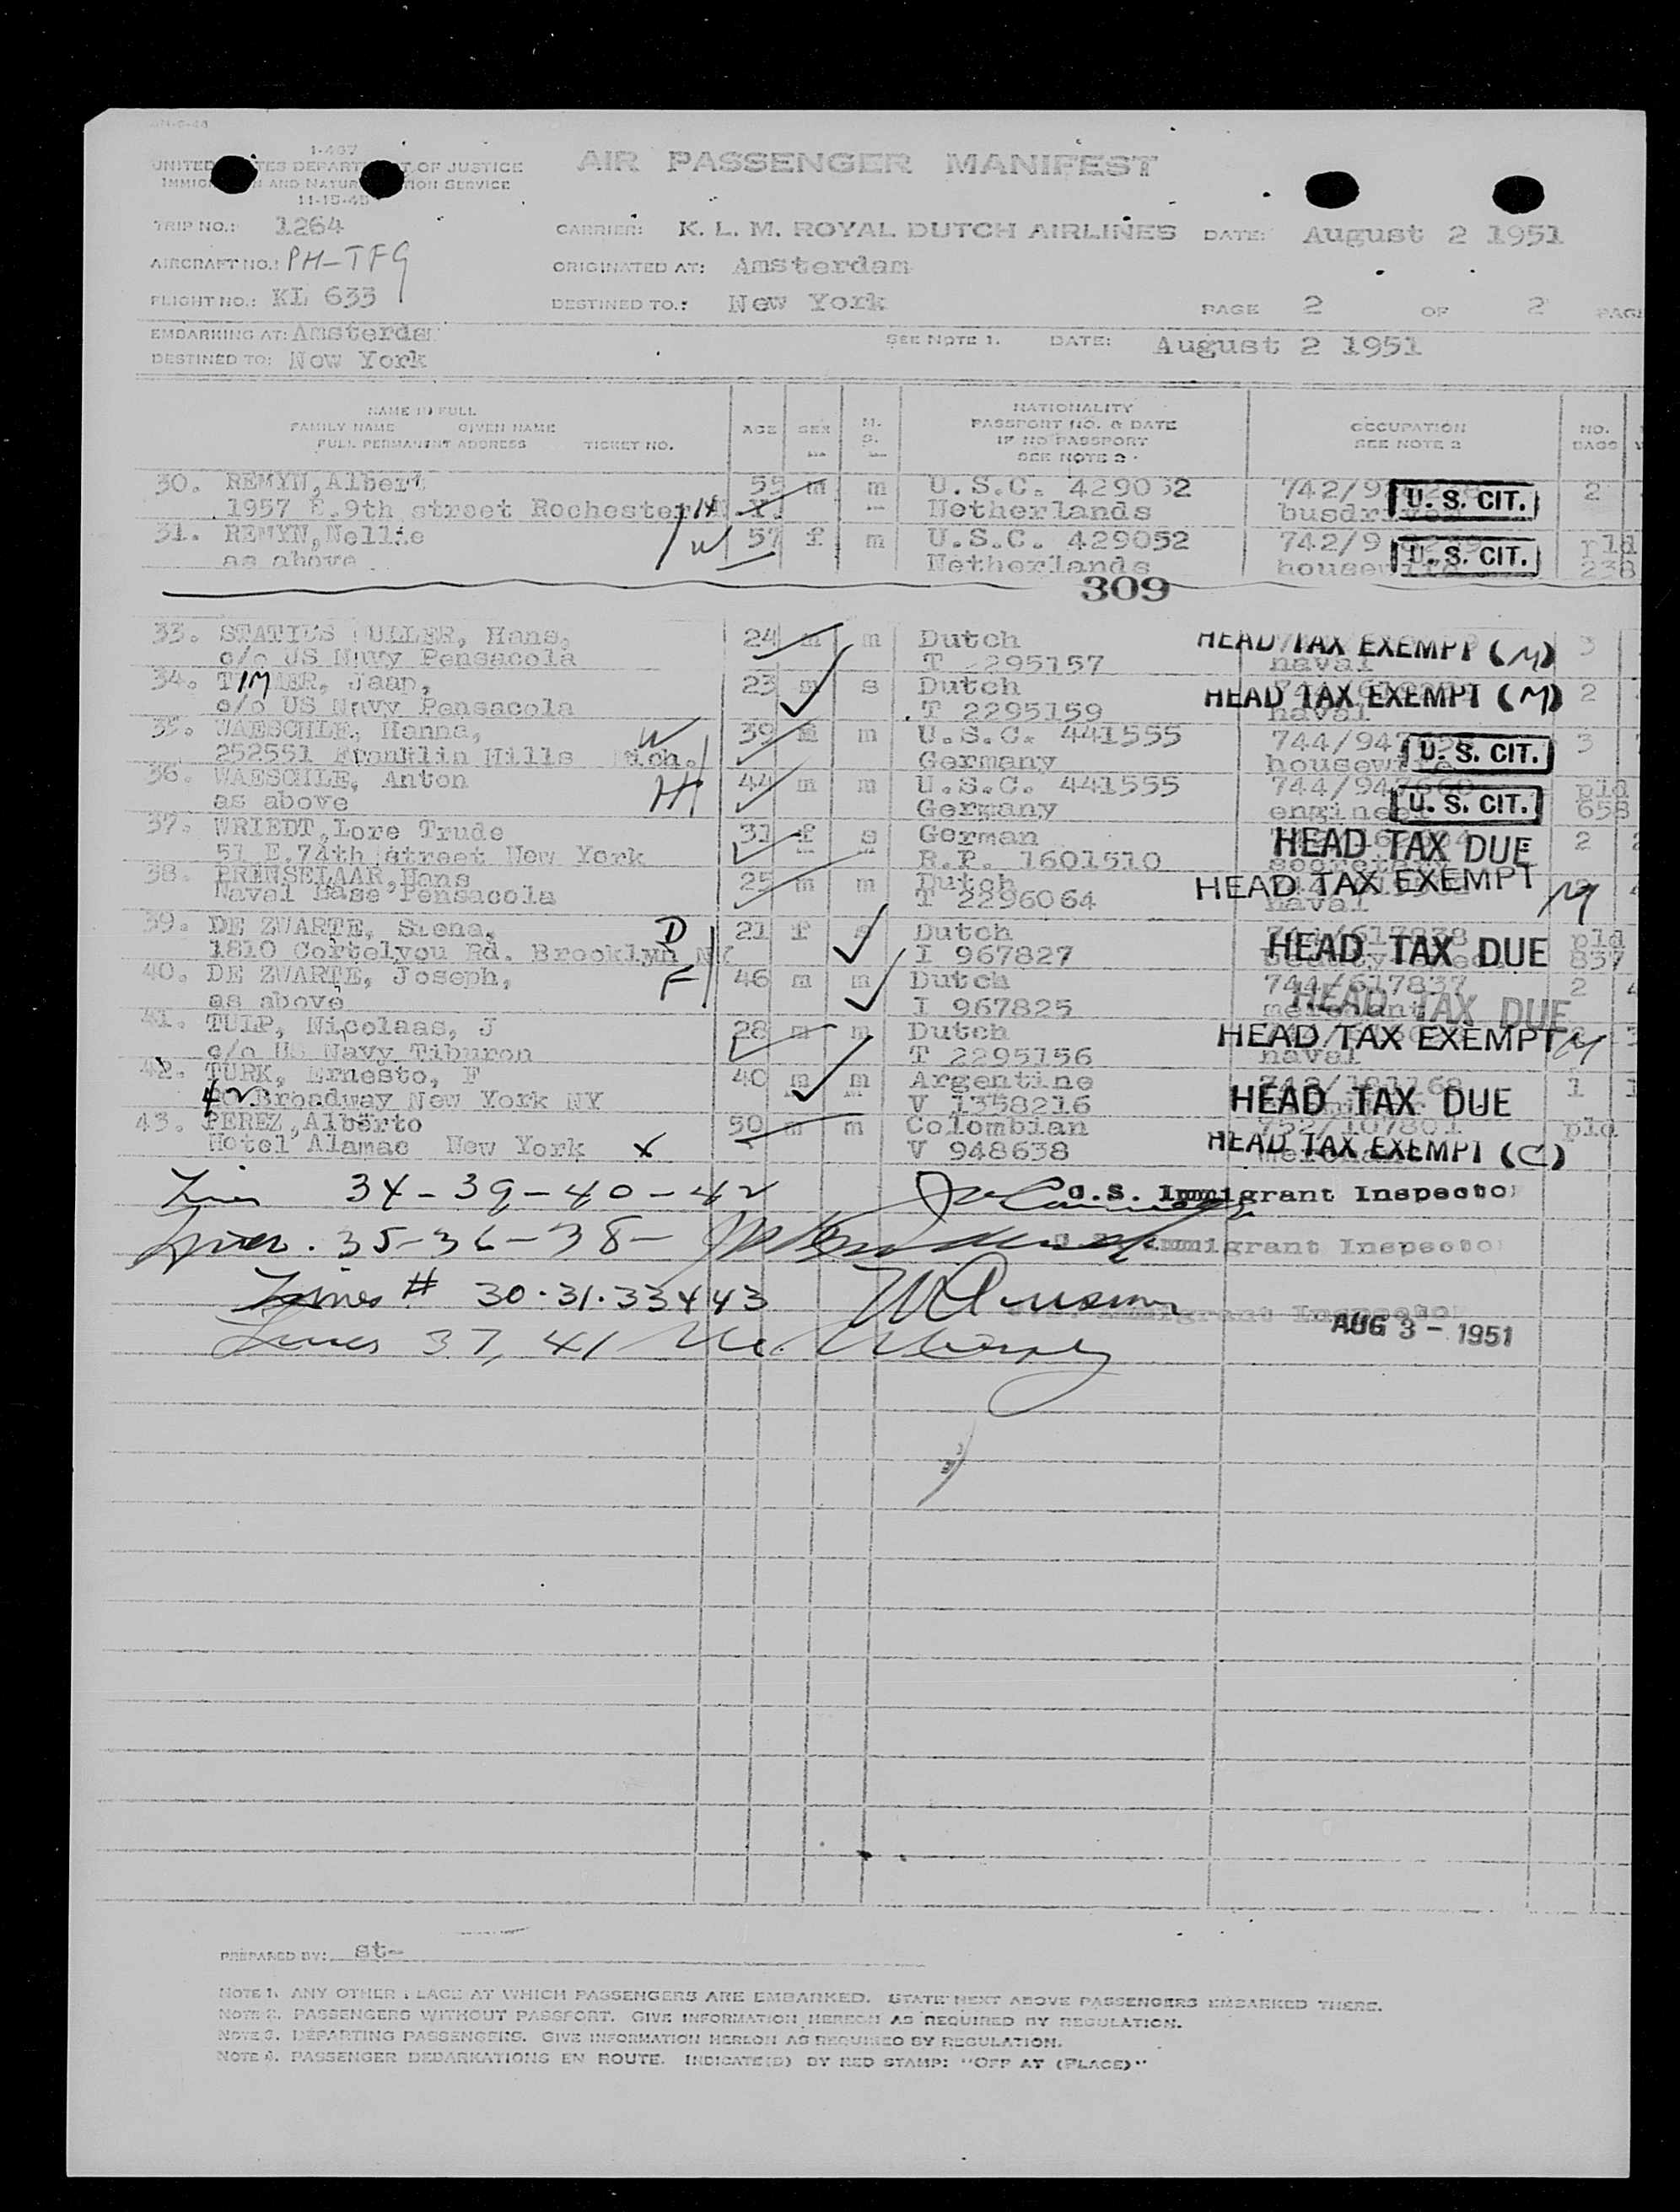 1-467
UNITED STATES DEPARTMENT OF JUSTICE
IMMIGRATION AND NATURALIZATION SERVICE
11-15-45
AIR PASSENGER MANIFEST
TRIP NO.: 1264 CARRIER: K. L. M. ROYAL DUTCH AIRLINES DATE: August 2 1951
AIRCRAFT NO.: PH-TFG ORIGINATED AT: Amsterdam
FLIGHT NO.: KL 633 DESTINED TO.: New York PAGE 2 OF 2 PAG
EMBARKING AT: Amsterdam SEE NOTE 1. DATE: August 2 1951
DESTINED TO: New York
NAME IN FULL
FAMILY NAME GIVEN NAME
FULL PERMANENT ADDRESS TICKET NO.
AGE SEX M. S.
NATIONALITY
PASSPORT NO. & DATE
IF NO PASSPORT
SEE NOTE 2
OCCUPATION
SEE NOTE 2
NO. BAGS
30. REMYN, Albert 55 m m U.S.C. 429052 742/9 U. S. CIT. 2
1957 E.9th street Rochester H Netherlands busdriver
31. REMYN, Nellie W 57 f m U.S.C. 429052 742/9 U. S. CIT. pld
as above Netherlands housewife 238
309
33. STATIUS MULLER, Hans, 24 m m Dutch HEAD TAX EXEMPT (M) 3
c/o US Navy Pensacola T 2295157 naval
34. TIMMER, Jaap, 23 m s Dutch HEAD TAX EXEMPT (M) 2
c/o US Navy Pensacola T 2295159 naval
35. WAESCHLE, Hanna, W 39 f m U.S.C. 441555 744/947 U. S. CIT. 3
252551 Franklin Hills Mich. Germany housewife
36. WAESCHLE, Anton H 44 m m U.S.C. 441555 744/947660 U. S. CIT. pld
as above Germany engineer 658
37. WRIEDT, Lore Trude 31 f s German HEAD TAX DUE 2
51 E.74th street New York R.P. 1601510 secretary
38. PRENSELAAR, Hans 25 m m Dutch HEAD TAX EXEMPT M
Naval Base Pensacola T 2296064 naval
39. DE ZWARTE, Siena, D 21 f s Dutch 744/617838 HEAD TAX DUE pld
1810 Cortelyou Rd. Brooklyn NY I 967827 837
40. DE ZWARTE, Joseph, F 46 m m Dutch 744/617837 2
as above I 967825 merchant HEAD TAX DUE
41. TULP, Nicolaas, J 28 m m Dutch HEAD TAX EXEMPT M
c/o US Navy Tiburon T 2295156 naval
42. TURK, Ernesto, F 40 m m Argentine HEAD TAX DUE 1
42 Broadway New York NY V 1358216
43. PEREZ, Alberto 50 m m Colombian 752/107801 pld
Hotel Alamac New York x V 948638 merchant HEAD TAX EXEMPT (C)
34-39-40-42 U.S. Immigrant Inspector
35-36-38- U.S. Immigrant Inspector
Lines # 30.31.33 & 43 U.S. Immigrant Inspector
Lines 37, 41 AUG 3 - 1951
PREPARED BY: st-
NOTE 1. ANY OTHER PLACE AT WHICH PASSENGERS ARE EMBARKED. STATE NEXT ABOVE PASSENGERS EMBARKED THERE.
NOTE 2. PASSENGERS WITHOUT PASSPORT. GIVE INFORMATION HEREON AS REQUIRED BY REGULATION.
NOTE 3. DEPARTING PASSENGERS. GIVE INFORMATION HEREON AS REQUIRED BY REGULATION.
NOTE 4. PASSENGER DEBARKATIONS EN ROUTE. INDICATE(D) BY RED STAMP: "OFF AT (PLACE)"